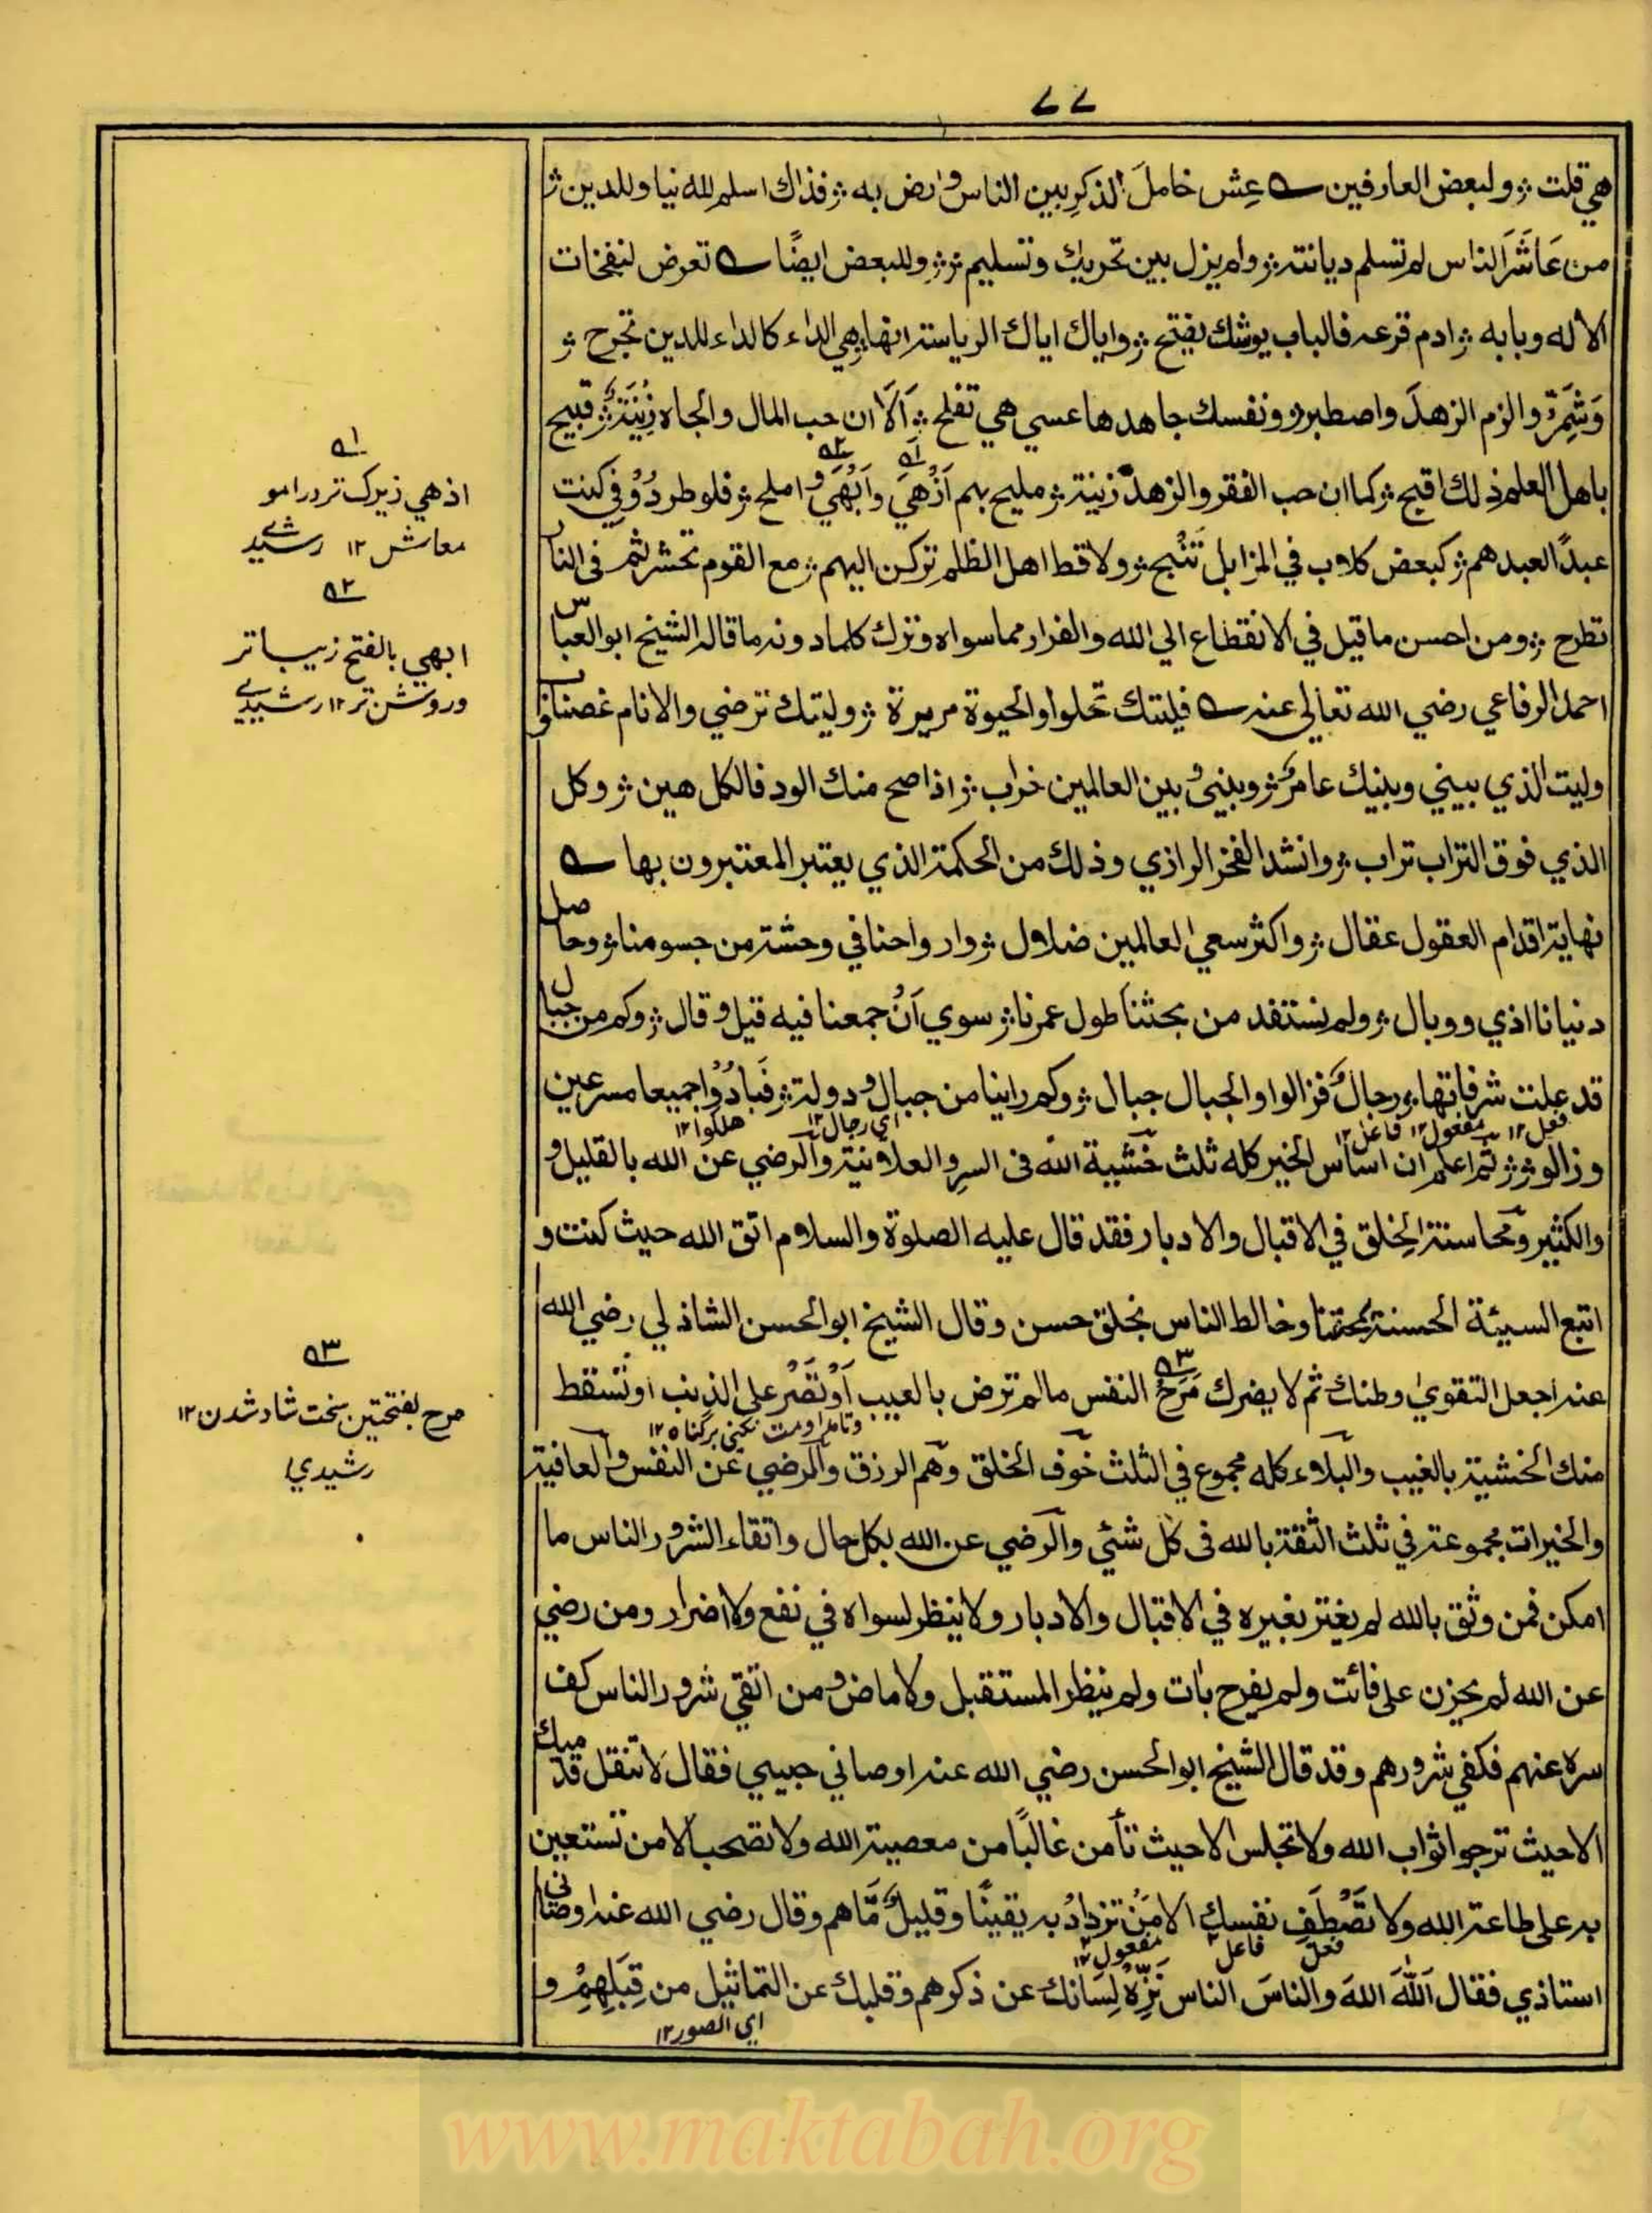 ٧٧
هي قلت ژ ولبعض العارفين ؎ عِش خاملَ الذكرِ بين الناس وارض به ژ فذاك اسلم للدنيا وللدين ژ
من عَاشَرَ الناس لم تسلم ديانته ژ ولم يزل بين تحريك وتسليم ژژ وللبعض ايضًا ؎ تعرض لنفخات
الاله وبابه ژ ادم قرعه فالباب يوشك يفتح ژ واياك اياك الرياسة انها ژ هي الداء كالداء للدين تجرح ژ
وَشَمِّرْ والزم الزهدَ واصطبر ژ ونفسك جاهدها عسي هي تفلح ژ اَلَا ان حب المال والجاه زِيْنَةٌ ژ قبيح
باهل العلم ذلك اقبح ژ كما ان حب الفقر والزهد زينة ژ مليح بهم اَزْهَي وَاَبْهَي و املح ژ فلو طردُوْني كنت
عبدًا لعبدهم ژ كبعض كلاب في المزابل تَنْبح ژ ولا قط اهل الظلم تركن اليهم ژ مع القوم تحشر ثم فى النار
تطرح ژ ومن احسن ما قيل في الانقطاع الي الله والفرار مما سواه وترك كلما دونه ما قاله الشيخ ابو العباس
احمد الرفاعي رضي الله تعالي عنه ؎ فليتك تحلوا والحيوة مريرة ژ وليتك ترضي والانام غضاب
وليت الذي بيني وبينك عامرٌ ژ وبيني و بين العالمين خراب ژ اذا صح منك الود فالكل هين ژ وكل
الذي فوق التراب تراب ژ وانشد الفخر الرازي وذلك من الحكمة الذي يعتبر المعتبرون بها ؎
نهاية اقدام العقول عقال ژ واكثر سعي العالمين ضلال ژ وارواحنا في وحشة من جسومنا ژ وحاصل
دنيانا اذي ووبال ژ ولم نستفد من بحثنا طول عمرنا ژ سوي اَنْ جمعنا فيه قيل وقال ژ وكم من جبال
قد علت شرفاتها ژ رجالٌ فزالوا والجبال جبال ژ وكم راينا من جبال و دولة ژ فَبَادُوْا جميعا مسرعين
فعل ١٢ مفعول ١٢ فاعل ١٢ اي رجال ١٢ هلكوا ١٢
وزالو ژژژ ثم اعلم ان اساس الخير كله ثلث خشية الله فى السرِ والعلانية والرضي عن الله بالقليل و
والكثير ومحاسنة الخلق في الاقبال والادبار فقد قال عليه الصلوة والسلام اتق الله حيث كنت و
اتبع السيئة الحسنة تمحتها وخالط الناس بخلق حسن وقال الشيخ ابو الحسن الشاذلي رضي الله
عنه اجعل التقوي وطنك ثم لا يضرك مَرَحُ النفس ما لم ترض بالعيب اَوْ تُصَرُ على الذنب او تسقط
منك الخشية بالغيب والبلاء كله مجموع في الثلث خوف الخلق وهم الرزق والرضي عن النفس والعافية
والخيرات مجموعة في ثلث الثقة بالله فى كل شئي والرضي عن الله بكل حال واتقاء الشرور الناس ما
امكن فمن وثق بالله لم يغتر بغيره في الاقبال والادبار ولا ينظر لسواه في نفع ولا اضرار ومن رضي
عن الله لم يحزن على فائت ولم يفرح بات ولم ينظر المستقبل ولا ماض ومن اتقي شرور الناس كف
سره عنهم فكفي شرورهم وقد قال الشيخ ابو الحسن رضي الله عنه اوصاني حبيبي فقال لا تنقل قدميك
الا حيث ترجوا ثواب الله ولا تجلس الا حيث تأمن غالبًا من معصية الله ولا تصحب الا من تستعين
به على طاعة الله ولا تَصْطَفِ نفسك الا مَنْ تزدادُ به يقينًا وقليلٌ مَّا هم وقال رضي الله عنه اوصاني
فعل فاعل مفعول ١٢
استاذي فقال اَللّٰهَ اللهَ والناسَ الناس نَزِّهْ لِسَانك عن ذكرهم وقلبك عن التماثيل من قِبَلِهِمْ و
اي الصور ١٢
؎١
اذهي زيرك تر در امو
معاش ١٢ رشيدي
؎٢
ابهي بالفتح زيبا تر
وروشن تر ١٢ رشيدي
؎٣
مرح بفتحتين سخت شاد شدن ١٢
رشيدي
www.maktabah.org